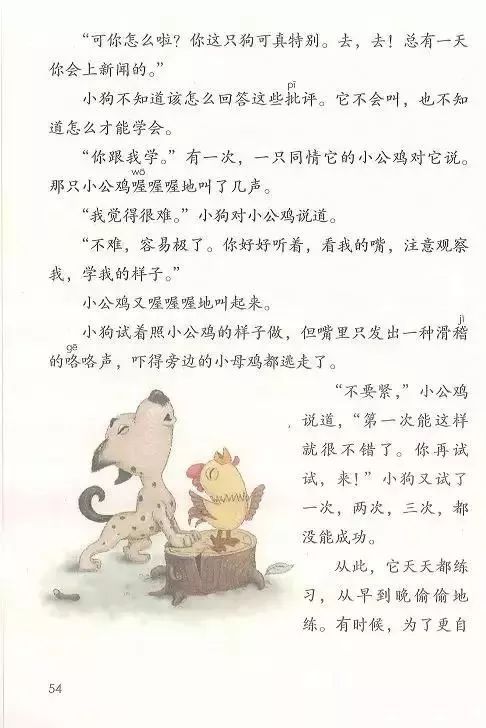 “可你怎么啦？你这只狗可真特别。去，去！总有一天
你会上新闻的。”
pī
小狗不知道该怎么回答这些批评。它不会叫，也不知
道怎么才能学会。
“你跟我学。”有一次，一只同情它的小公鸡对它说。
wō
那只小公鸡喔喔喔地叫了几声。
“我觉得很难。”小狗对小公鸡说道。
“不难，容易极了。你好好听着，看我的嘴，注意观察
我，学我的样子。”
小公鸡又喔喔喔地叫起来。
jī
小狗试着照小公鸡的样子做，但嘴里只发出一种滑稽
gē
的咯咯声，吓得旁边的小母鸡都逃走了。
“不要紧，”小公鸡
说道，“第一次能这样
就很不错了。你再试
试，来！”小狗又试了
一次，两次，三次，都
没能成功。
从此，它天天都练
习，从早到晚偷偷地
练。有时候，为了更自
54